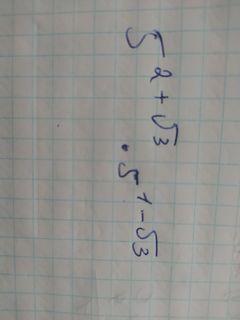 5^{2+√3} · 5^{1-√3}